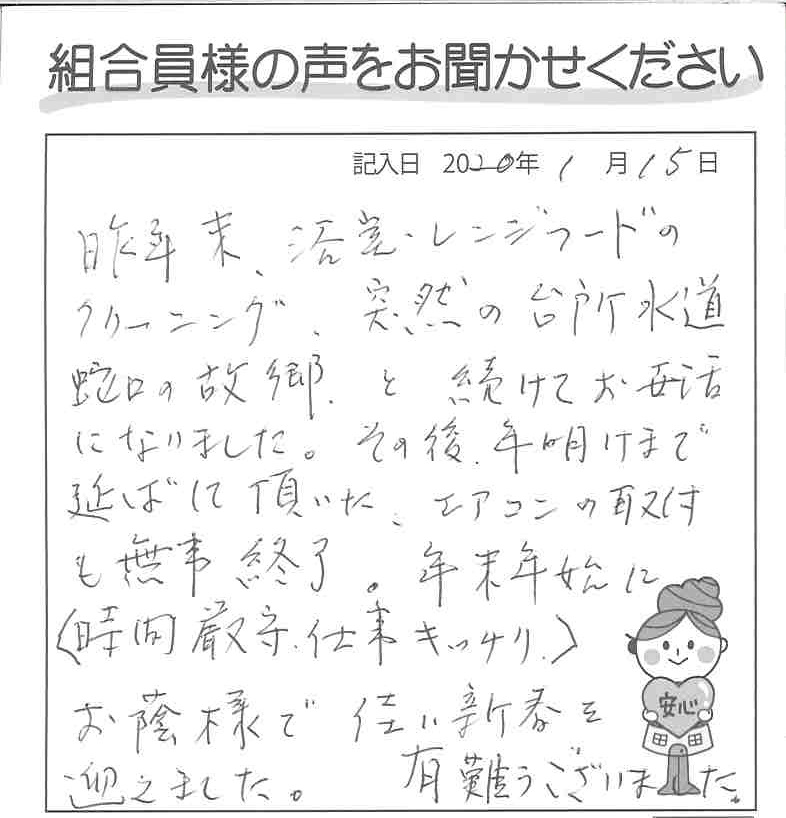 組合員様の声をお聞かせください
記入日 2020年 1 月 15 日
昨年末、浴室・レンジフードの
クリーニング、突然の台所水道
蛇口の故郷、と続けてお世話
になりました。その後、年明けまで
延ばして頂いた、エアコンの取付
も無事終了。年末年始に
〈時間厳守、仕事キッチリ、〉
お蔭様で佳い新春を
迎えました。 有難うございました。
安心